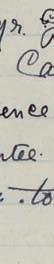 yr.
Ca
ence
ntee.
to